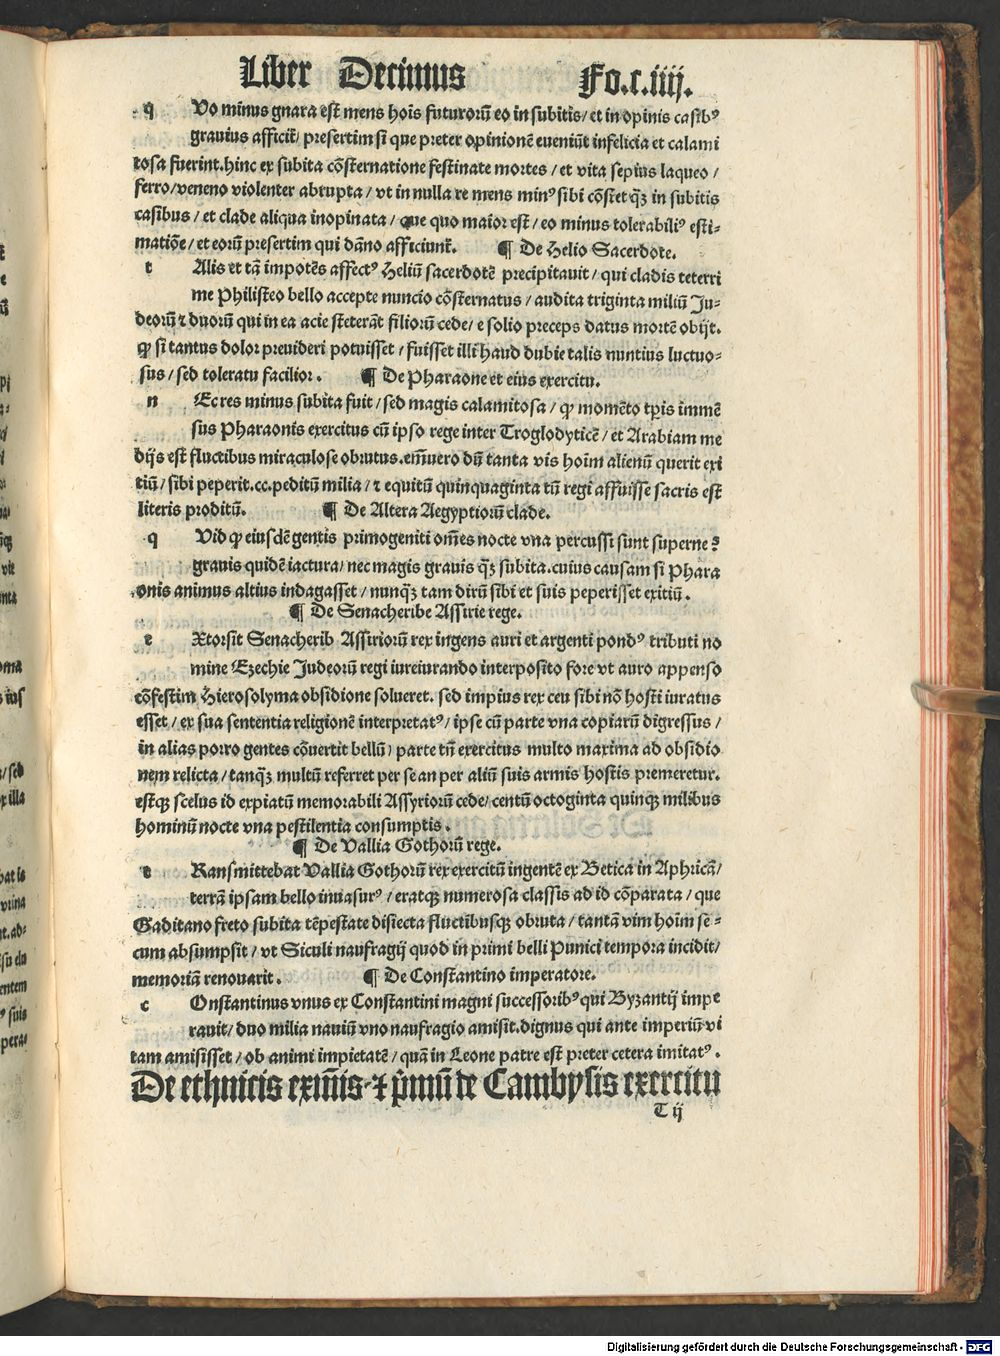 Liber Decimus Fo.c.iiij.
q Vo minus gnara est mens hoīs futurorū eo in subitis / et in opinis casibꝰ
grauius afficit̄ / presertim si que preter opinionē eueniūt infelicia et calami
tosa fuerint. hinc ex subita cōsternatione festinate mortes / et vita sepius laqueo /
ferro / veneno violenter abrupta / vt in nulla re mens minꝰ sibi cōstet qꝫ in subitis
casibus / et clade aliqua inopinata / que quo maior est / eo minus tolerabiliꝰ esti⸗
matiōe / et eorū presertim qui dāno afficiunt̄. ¶ De Helio Sacerdote.
t Alis et tā impotēs affectꝰ Heliū sacerdotē precipitauit / qui cladis teterri
me Philisteo bello accepte nuncio cōsternatus / audita triginta miliū Ju⸗
deorū ⁊ duorū qui in ea acie steterāt filiorū cede / e solio preceps datus mortē obijt.
ꝙ si tantus dolor preuideri potuisset / fuisset illi haud dubie talis nuntius luctuo⸗
sus / sed toleratu facilior. ¶ De Pharaone et eius exercitu.
n Ec res minus subita fuit / sed magis calamitosa / ꝙ momēto tp̄is immē
sus Pharaonis exercitus cū ipso rege inter Troglodyticē / et Arabiam me
dijs est fluctibus miraculose obrutus. em̄uero dū tanta vis hoīm alienū querit exi
tiū / sibi peperit. cc. peditū milia / ⁊ equitū quinquaginta tū regi affuisse sacris est
literis proditū. ¶ De Altera Aegyptiorū clade.
q Vid ꝙ eiusdē gentis primogeniti om̄es nocte vna percussi sunt superne?
grauis quidē iactura / nec magis grauis qꝫ subita. cuius causam si Phara
onis animus altius indagasset / nunqꝫ tam dirū sibi et suis peperisset exitiū.
¶ De Senacheribe Assirie rege.
e Xtorsit Senacherib Assiriorū rex ingens auri et argenti pondꝰ tributi no
mine Ezechie Judeorū regi iureiurando interposito fore vt auro appenso
cōfestim Hierosolyma obsidione solueret. sed impius rex ceu sibi nō hosti iuratus
esset / ex sua sententia religionē interpretatꝰ / ipse cū parte vna copiarū digressus /
in alias porro gentes cōuertit bellū / parte tn̄ exercitus multo maxima ad obsidio
nem relicta / tanqꝫ multū referret per se an per aliū suis armis hostis premeretur.
estqꝫ scelus id expiatū memorabili Assyriorū cede / centū octoginta quinqꝫ milibus
hominū nocte vna pestilentia consumptis.
¶ De Vallia Gothorū rege.
t Ransmittebat Vallia Gothorū rex exercitū ingentē ex Betica in Aphricā /
terrā ipsam bello inuasurꝰ / eratqꝫ numerosa classis ad id cōparata / que
Gaditano freto subita tēpestate disiecta fluctibusqꝫ obruta / tantā vim hoīm se⸗
cum absumpsit / vt Siculi naufragij quod in primi belli Punici tempora incidit /
memoriā renouarit. ¶ De Constantino imperatore.
c Onstantinus vnus ex Constantini magni successoribꝰ qui Byzantij impe
rauit / duo milia nauiū vno naufragio amisit. dignus qui ante imperiū vi
tam amisisset / ob animi impietatē / quā in Leone patre est preter cetera imitatꝰ.
De ethnicis exm̄is ⁊ p̄mū de Cambysis exercitu
T ij
Digitalisierung gefördert durch die Deutsche Forschungsgemeinschaft - DFG